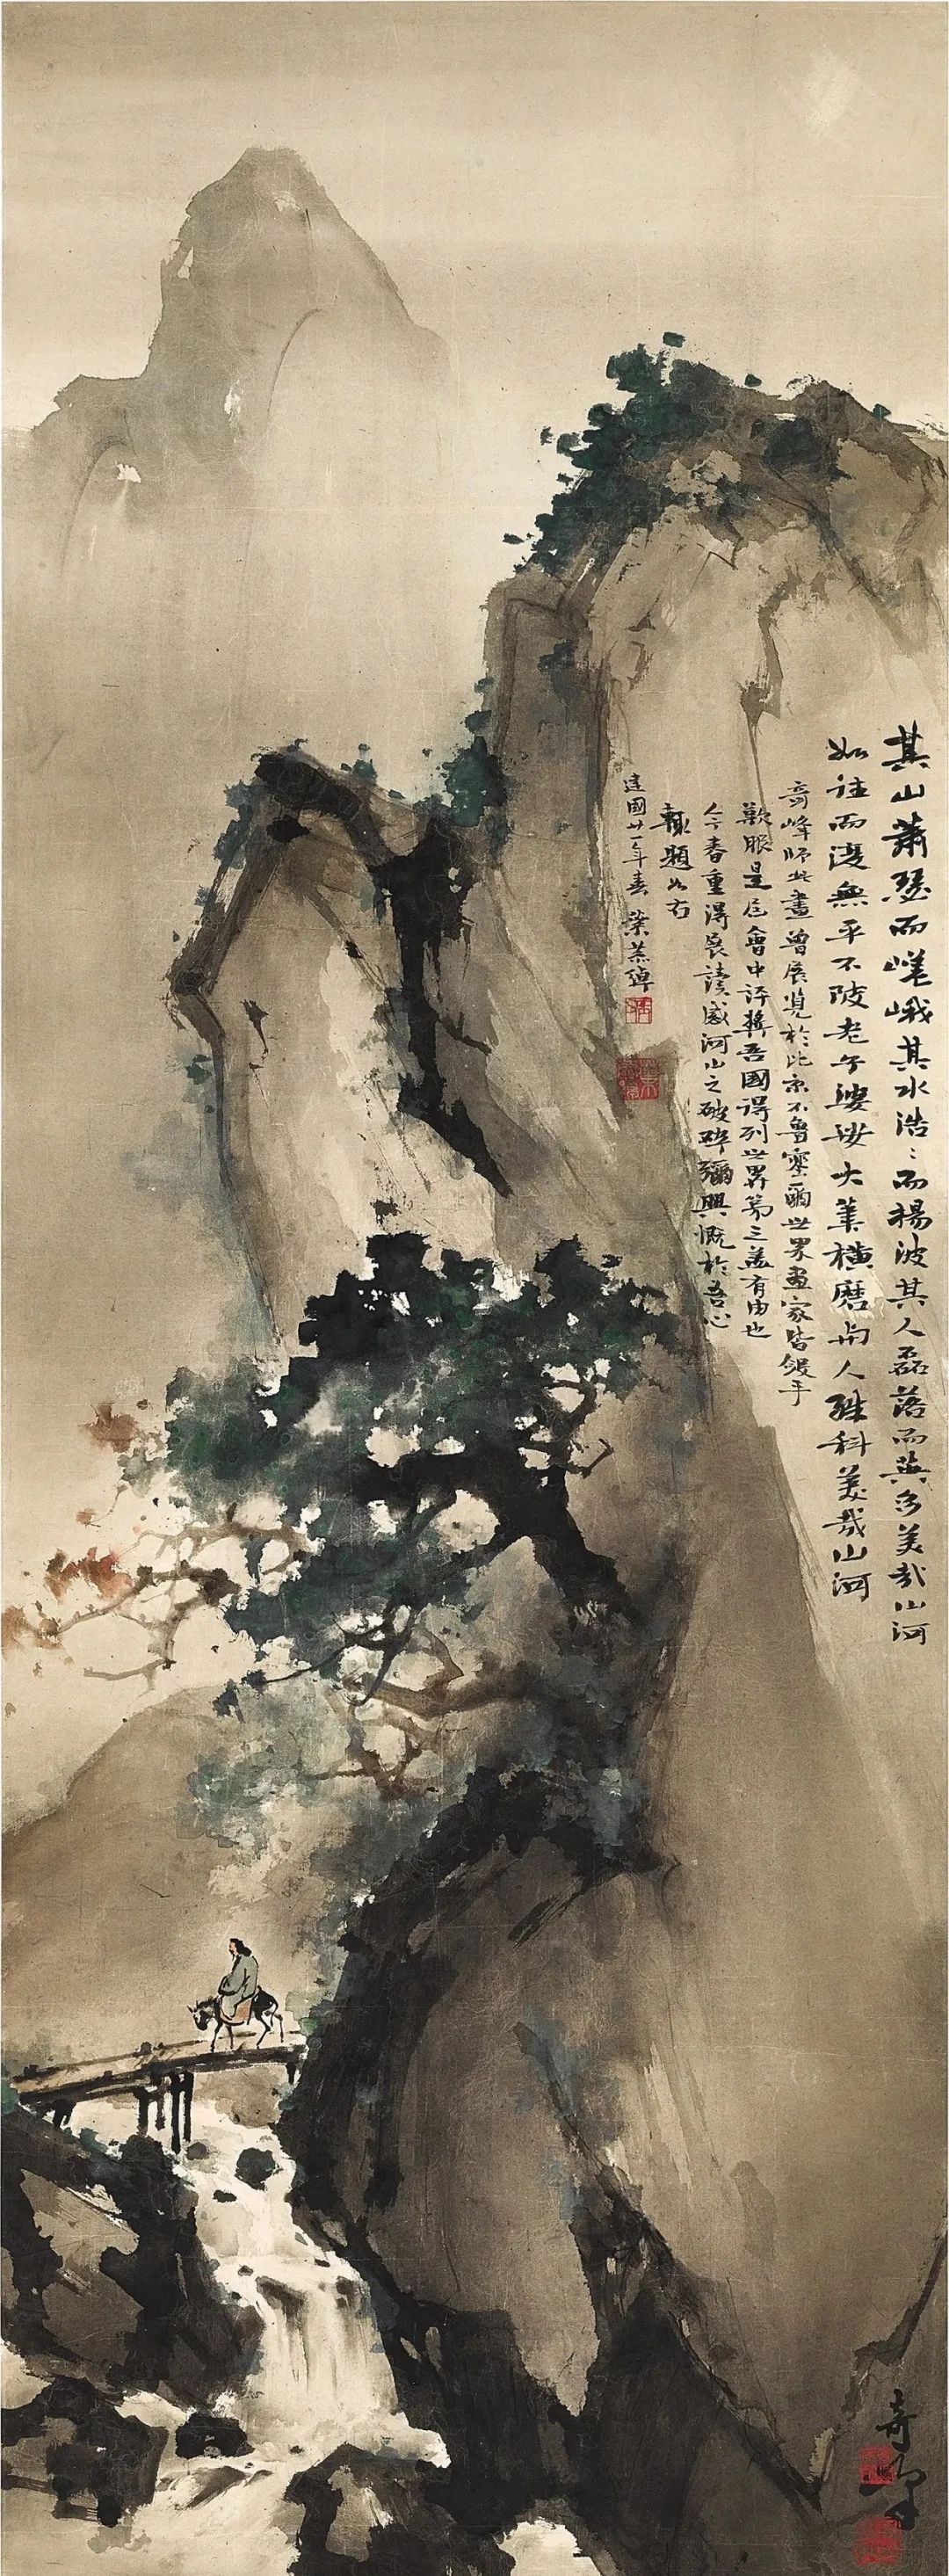 其山蕭瑟而嵯峨其水浩〻而揚波其人磊落而英多美哉山河
如詿而漫無平不陂老午婆娑大筆橫磨與人殊科美哉山河
奇峰師此畫曾展覽於比京不魯塞爾世界畫家皆斂手
歎服是后會中評獎吾國得列世界第三蓋有由也
今春重得展讀感河山之破碎彌興慨於吾心
輒題如右
建國廿一年春 葉恭綽
奇峰